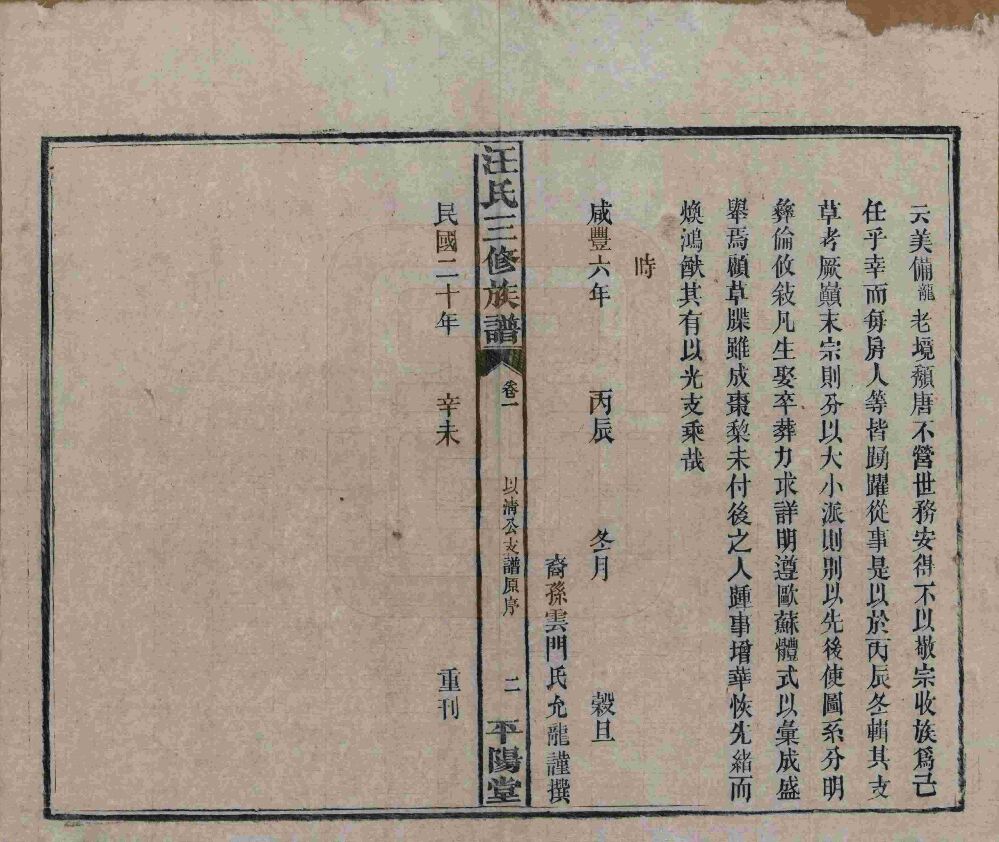 云美備龍老境頹唐不營世務安得不以敬宗收族爲己
任乎幸而每房人等皆踴躍從事是以於丙辰冬輯其支
草考厥巔末宗則分以大小派則別以先後使圖系分明
彝倫攸敍凡生娶卒葬力求詳明遵歐蘇體式以彙成盛
舉焉顧草牒雖成棗棃未付後之人踵事增華恢先緒而
煥鴻猷其有以光支乘哉
時
咸豐六年 丙辰 冬月 穀旦
裔孫雲門氏允龍謹撰
汪氏三修族譜 卷一 以清公支譜原序 二 平陽堂
民國二十年 辛未 重刊